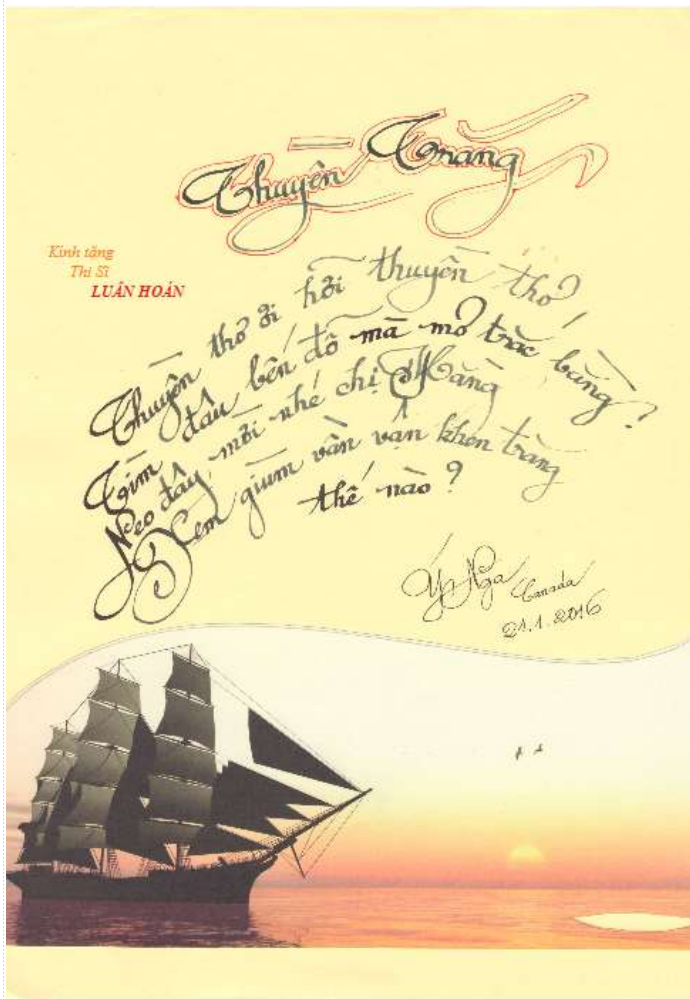 Thuyền Trăng
Kính tặng
Thi Sĩ
LUÂN HOÁN
Thuyền thơ ơi hỡi thuyền thơ!
Tìm đâu bến đỗ mà mơ trắc bằng?
Neo đây, mời nhé chị Hằng
Xem giùm vần vận khen trăng
thế nào?
Ý Nga Canada
21.1.2016